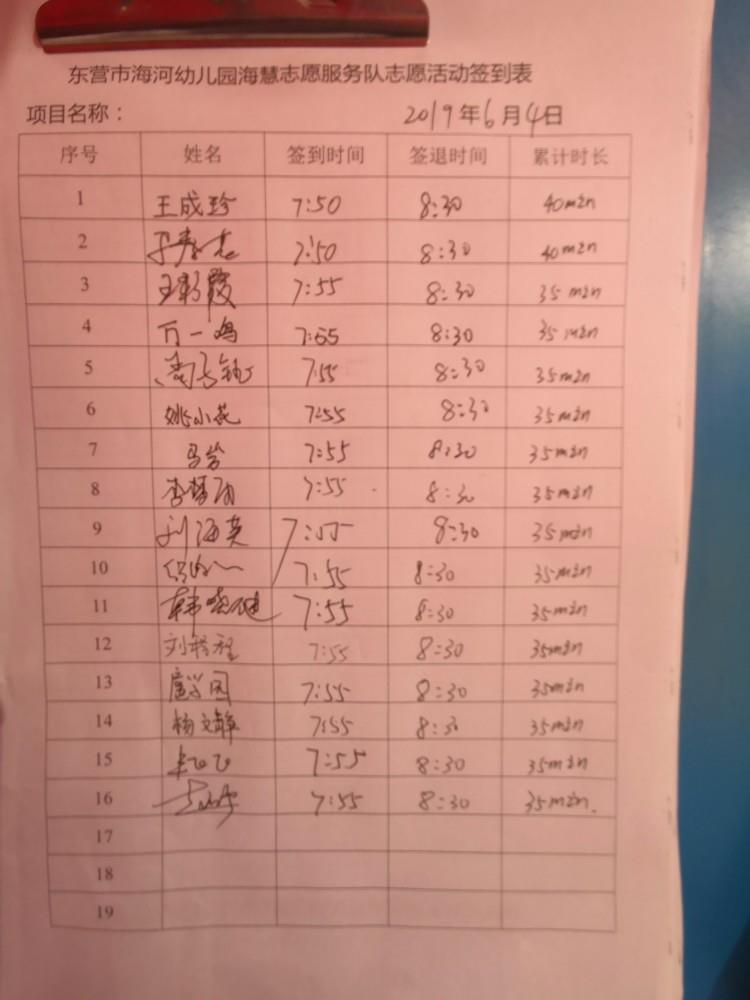 东营市海河幼儿园海慧志愿服务队志愿活动签到表
项目名称： 2019年6月4日
序号 姓名 签到时间 签退时间 累计时长
1 王成珍 7:50 8:30 40min
2 7:50 8:30 40min
3 王彩霞 7:55 8:30 35min
4 万一鸣 7:55 8:30 35min
5 7:55 8:30 35min
6 姚小花 7:55 8:30 35min
7 马岩 7:55 8:30 35min
8 7:55 8:30 35min
9 刘海英 7:55 8:30 35min
10 7:55 8:30 35min
11 韩晓健 7:55 8:30 35min
12 7:55 8:30 35min
13 7:55 8:30 35min
14 杨文静 7:55 8:30 35min
15 7:55 8:30 35min
16 7:55 8:30 35min.
17
18
19